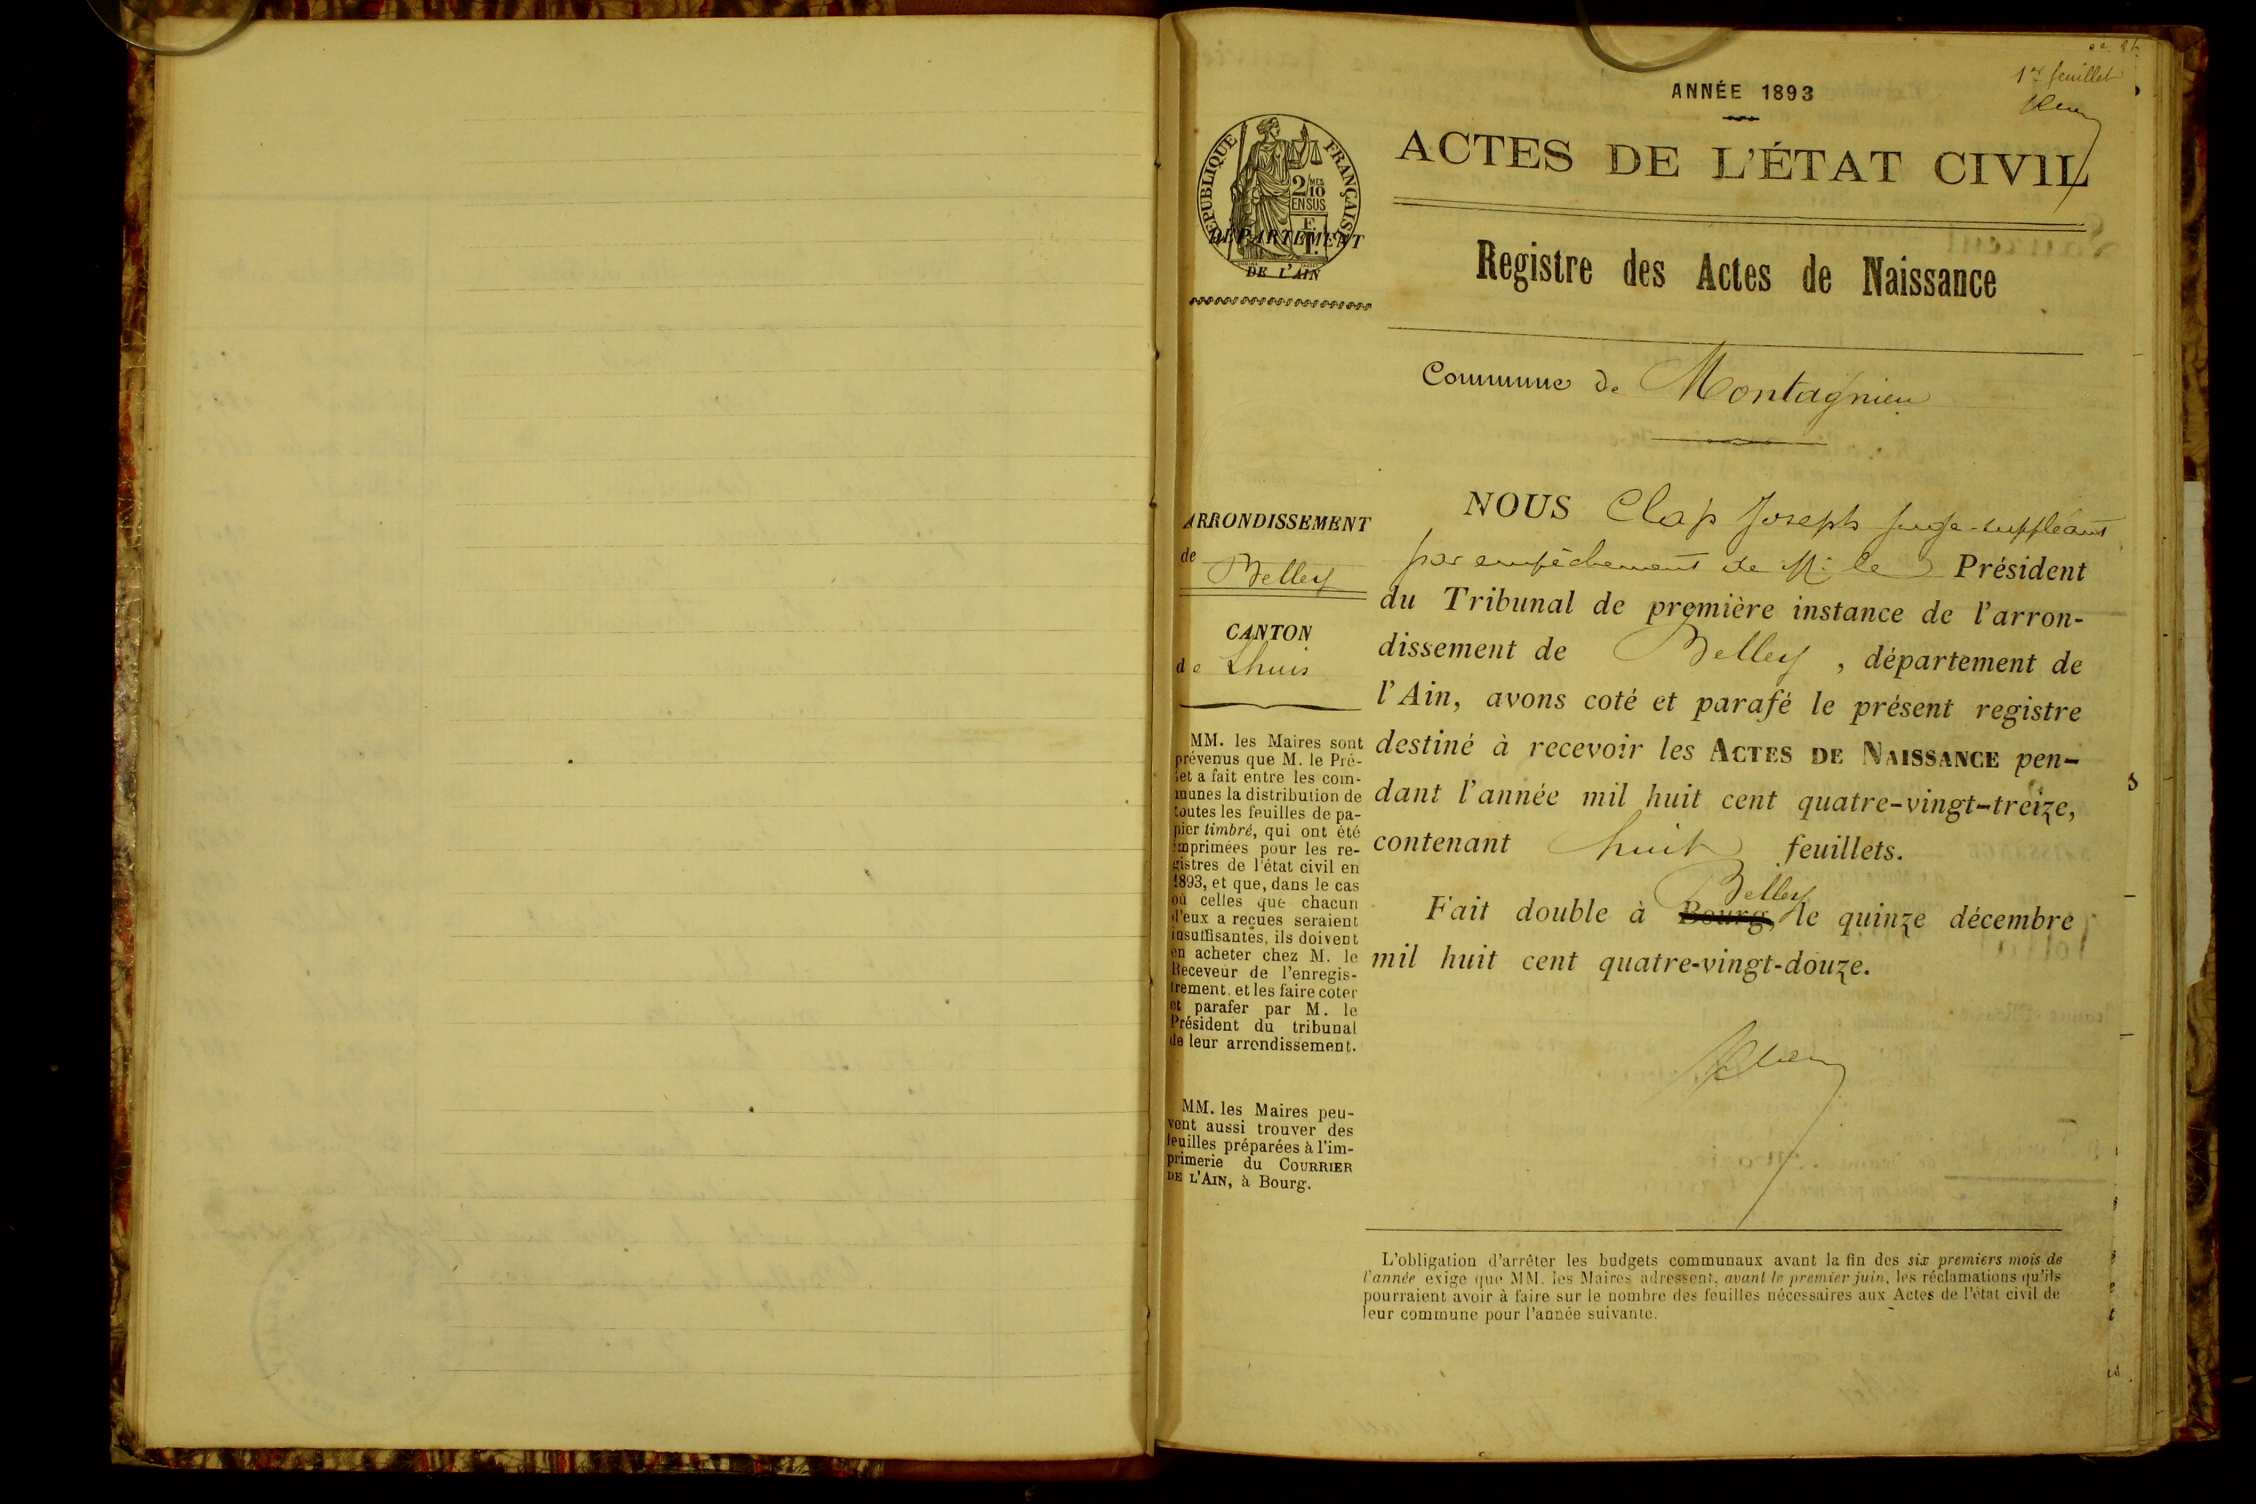 1er feuillet
ANNÉE 1893
ACTES DE L'ÉTAT CIVIL
RÉPUBLIQUE FRANÇAISE
2/10
MES
EN SUS
DÉPARTEMENT
DE L'AIN
Registre des Actes de Naissance
Commune de Montagnieu
ARRONDISSEMENT
de
Belley
CANTON
de Lhuis
MM. les Maires sont
prévenus que M. le Pré-
fet a fait entre les com-
munes la distribution de
toutes les feuilles de pa-
pier timbré, qui ont été
imprimées pour les re-
gistres de l'état civil en
1893, et que, dans le cas
où celles que chacun
d'eux a reçues seraient
insuffisantes, ils doivent
en acheter chez M. le
Receveur de l'enregis-
trement, et les faire coter
et parafer par M. le
Président du tribunal
de leur arrondissement.
MM. les Maires peu-
vent aussi trouver des
feuilles préparées à l'im-
primerie du COURRIER
DE L'AIN, à Bourg.
NOUS Clap Joseph Juge-suppléant
par empêchement de M. le Président
du Tribunal de première instance de l'arron-
dissement de Belley, département de
l'Ain, avons coté et parafé le présent registre
destiné à recevoir les ACTES DE NAISSANCE pen-
dant l'année mil huit cent quatre-vingt-treize,
contenant huit feuillets.
Belley
Fait double à Bourg, le quinze décembre
mil huit cent quatre-vingt-douze.
L'obligation d'arrêter les budgets communaux avant la fin des six premiers mois de
l'année exige que MM. les Maires adressent, avant le premier juin, les réclamations qu'ils
pourraient avoir à faire sur le nombre des feuilles nécessaires aux Actes de l'état civil de
leur commune pour l'année suivante.